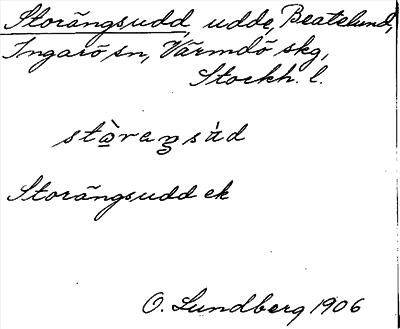 Storängsudd, udde, Beatelund,
Ingarö sn, Värmdö skg,
Stockh. l.
Storängsudd ek
O. Lundberg 1906